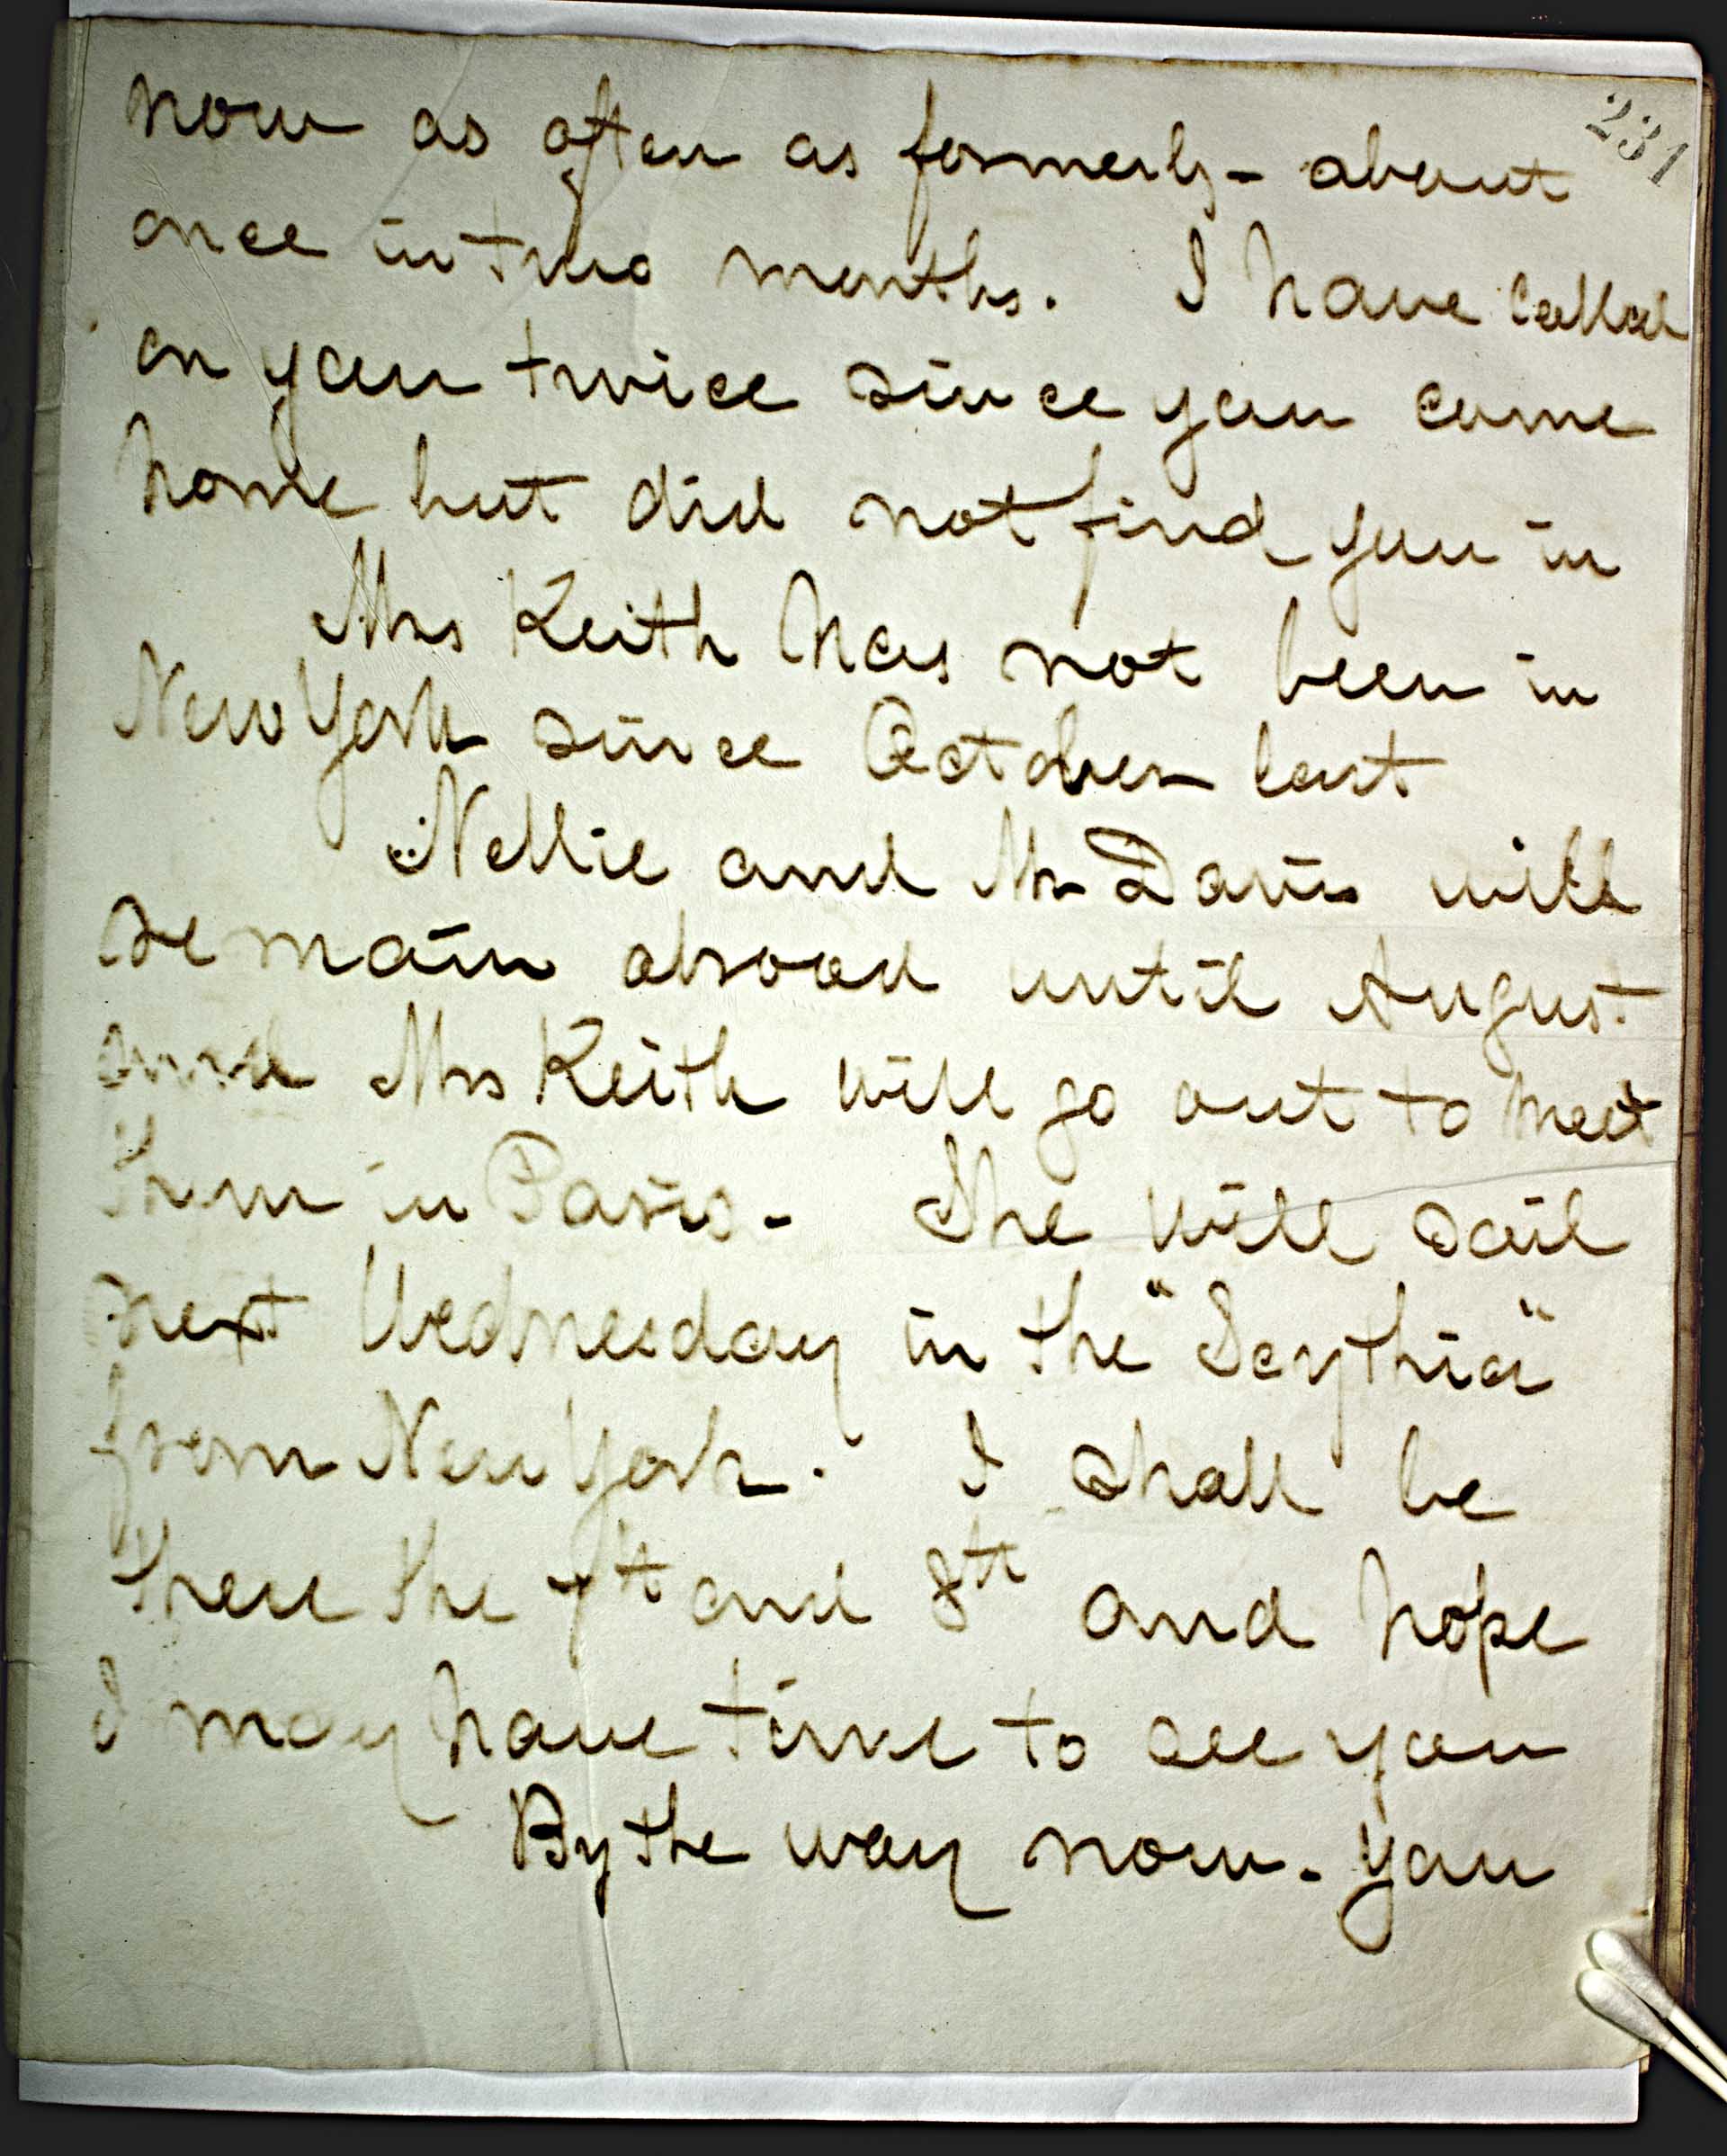 231
now as often as formerly - about
once in two months. I have called
on you twice since you came
home but did not find you in
Mrs Keith has not been in
New York since October last
Nellie and Mr Davis will
remain abroad until August
and Mrs Keith will go out to meet
them in Paris - She will sail
next Wednesday in the "Scythia"
from New York. I shall be
there the 7th and 8th and hope
I may have time to see you
By the way now - you